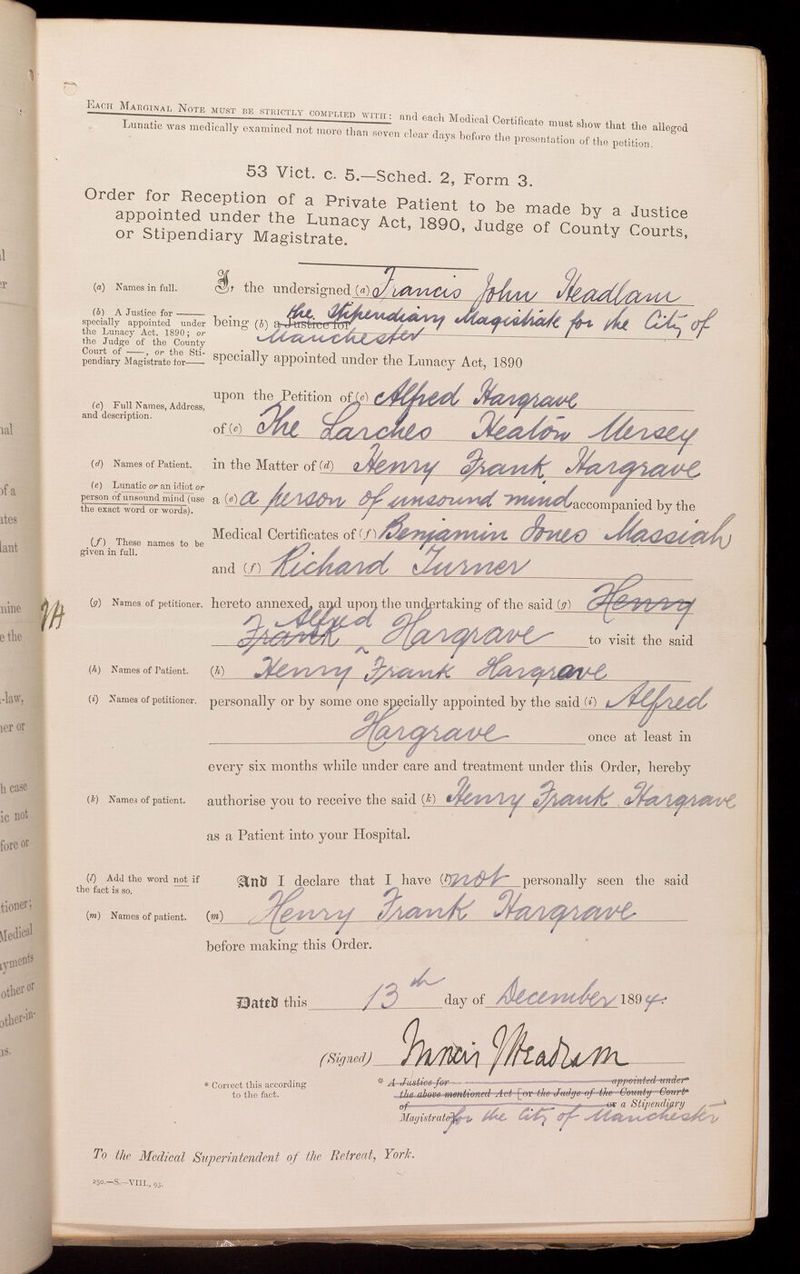 EACH MARGINAL NOTE MUST BE STRICTLY COMPLIED WITH: and each Medical Certificate must show that the alleged
Lunatic was medically examined not more than seven clear days before the presentation of the petition.
53 Vict. c. 5.—Sched. 2, Form 3.
Order for Reception of a Private Patient to be made by a Justice
appointed under the Lunacy Act, 1890, Judge of County Courts,
or Stipendiary Magistrate.
(a) Names in full.
I, the undersigned (a) Francis John Headlam
(b) A Justice for ——
specially appointed under
the Lunacy Act, 1890; or
the Judge of the County
Court of ——, or the Sti-
pendiary Magistrate for——
being (b) a Justice for the Stipendiary Magistrate for the City of
Manchester
specially appointed under the Lunacy Act, 1890
(c) Full Names, Address,
and description.
upon the Petition of (c) Alfred Hargrave
of (c) The Larches Heaton Mersey
(d) Names of Patient.
in the Matter of (d) Henry Frank Hargrave
(e) Lunatic or an idiot or
person of unsound mind (use
the exact word or words).
a (e) a person of unsound mind accompanied by the
(f) These names to be
given in full.
Medical Certificates of (f) Benjamin Jones Massiah
and (f) Richard Turner
(g) Names of petitioner.
hereto annexed, and upon the undertaking of the said (g) Henry
Frank Alfred Hargrave to visit the said
(h) Names of Patient.
(h) Henry Frank Hargrave
(i) Names of petitioner.
personally or by some one specially appointed by the said (i) Alfred
Hargrave once at least in
every six months while under care and treatment under this Order, hereby
(k) Names of patient.
authorise you to receive the said (k) Henry Frank Hargrave
as a Patient into your Hospital.
(l) Add the word not if
the fact is so.
And I declare that I have (l) not personally seen the said
(m) Names of patient.
(m) Henry Frank Hargrave
before making this Order.
Dated this 13th day of December 1894.
(Signed) Francis J Headlam
* Correct this according
to the fact.
* A Justice for —— appointed under
the above mentioned Act [or the Judge of the County Court
of —— or a Stipendiary
Magistrate for the City of Manchester
To the Medical Superintendent of the Retreat, York.
250.—S.—VIII., 93.